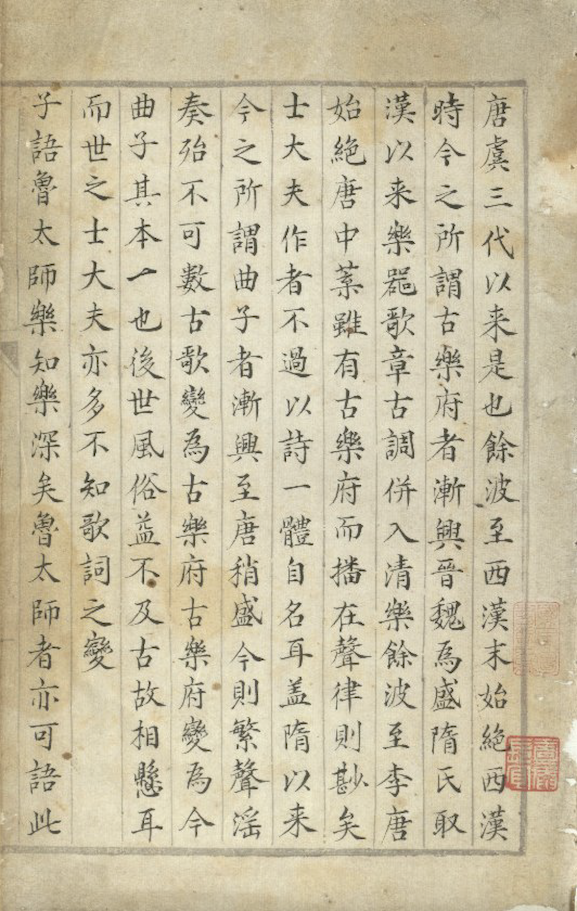 唐虞三代以来是也餘波至西漢末始絶西漢
時今之所謂古樂府者漸興晉魏為盛隋氏取
漢以来樂噐歌章古調併入清樂餘波至李唐
始絶唐中葉雖有古樂府而播在聲律則尠矣
士大夫作者不過以詩一體自名耳盖隋以来
今之所謂曲子者漸興至唐稍盛今則繁聲滛
奏殆不可數古歌變為古樂府古樂府變為今
曲子其本一也後世風俗益不及古故相懸耳
而世之士大夫亦多不知歌詞之變
子語魯太師樂知樂深矣魯太師者亦可語此